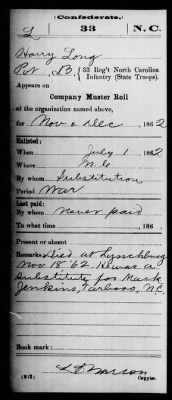 Confederate.
L 33 N. C.
Harry Long
Pvt , Co. B, 33 Reg't North Carolina
Infantry (State Troops).
Appears on
Company Muster Roll
of the organization named above,
for Nov & Dec , 1862
Enlisted:
When July 1 , 1862
Where N.C.
By whom Substitution
Period War
Last paid:
By whom never paid
To what time , 186
Present or absent
Remarks: Died at Lynchburg
Nov 18. 62. He was a
substitute for Mark
Jenkins, Tarboro, N.C.
(642)
Copyist.